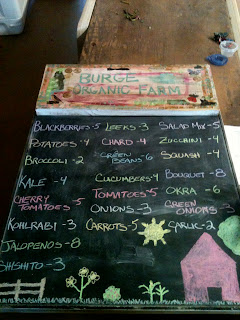 BURGE
ORGANIC FARM
BLACKBERRIES-5 LEEKS-3 SALAD MIX-5
POTATOES-4 CHARD-4 ZUCCHINI-4
BROCCOLI-2 GREEN BEANS-6 SQUASH-4
KALE-4 CUCUMBERS-4 BOUQUET-8
CHERRY TOMATOES-5 TOMATOES-5 OKRA-6
KOHLRABI-3 ONIONS-3 GREEN ONIONS-3
JALAPENOS-8 CARROTS-5 GARLIC-2
SHISHITO-3